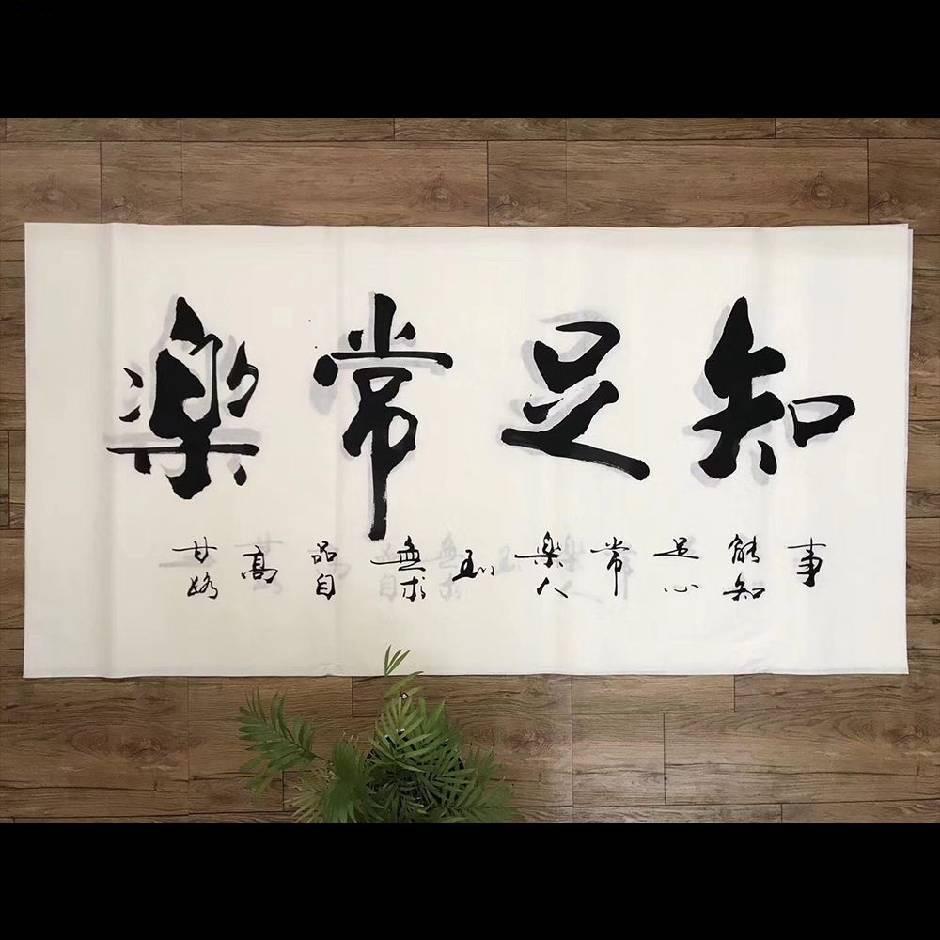 知足常樂
事能知足心常樂人到無求品自高